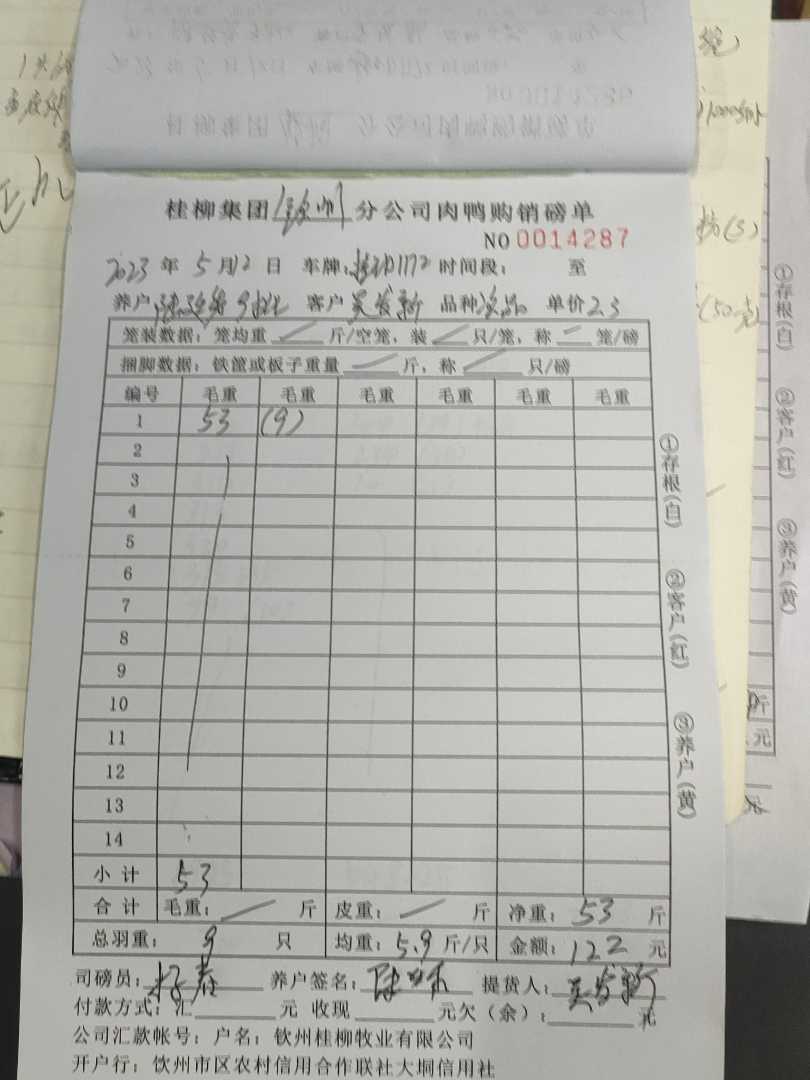 桂柳集团钦州分公司肉鸭购销磅单
NO 0014287
2023年5月12日 车牌: 1172 时间段: 至
养户 客户 吴发新 品种 次品 单价 2.3
笼装数据: 笼均重 斤/空笼, 装 只/笼, 称 笼/磅
捆脚数据: 铁筐或板子重量 斤, 称 只/磅
编号 毛重 毛重 毛重 毛重 毛重 毛重
1 53 (9)
2
3
4
5
6
7
8
9
10
11
12
13
14
小计 53
合计 毛重: 斤 皮重: 斤 净重: 53 斤
总羽重: 9 只 均重: 5.9 斤/只 金额: 122 元
司磅员: 养户签名: 提货人: 吴发新
付款方式: 汇 元 收现 元欠(余): 元
公司汇款帐号: 户名: 钦州桂柳牧业有限公司
开户行: 钦州市区农村信用合作联社大垌信用社
①存根(白) ②客户(红) ③养户(黄)
①存根(白) ②客户(红) ③养户(黄)
斤
元